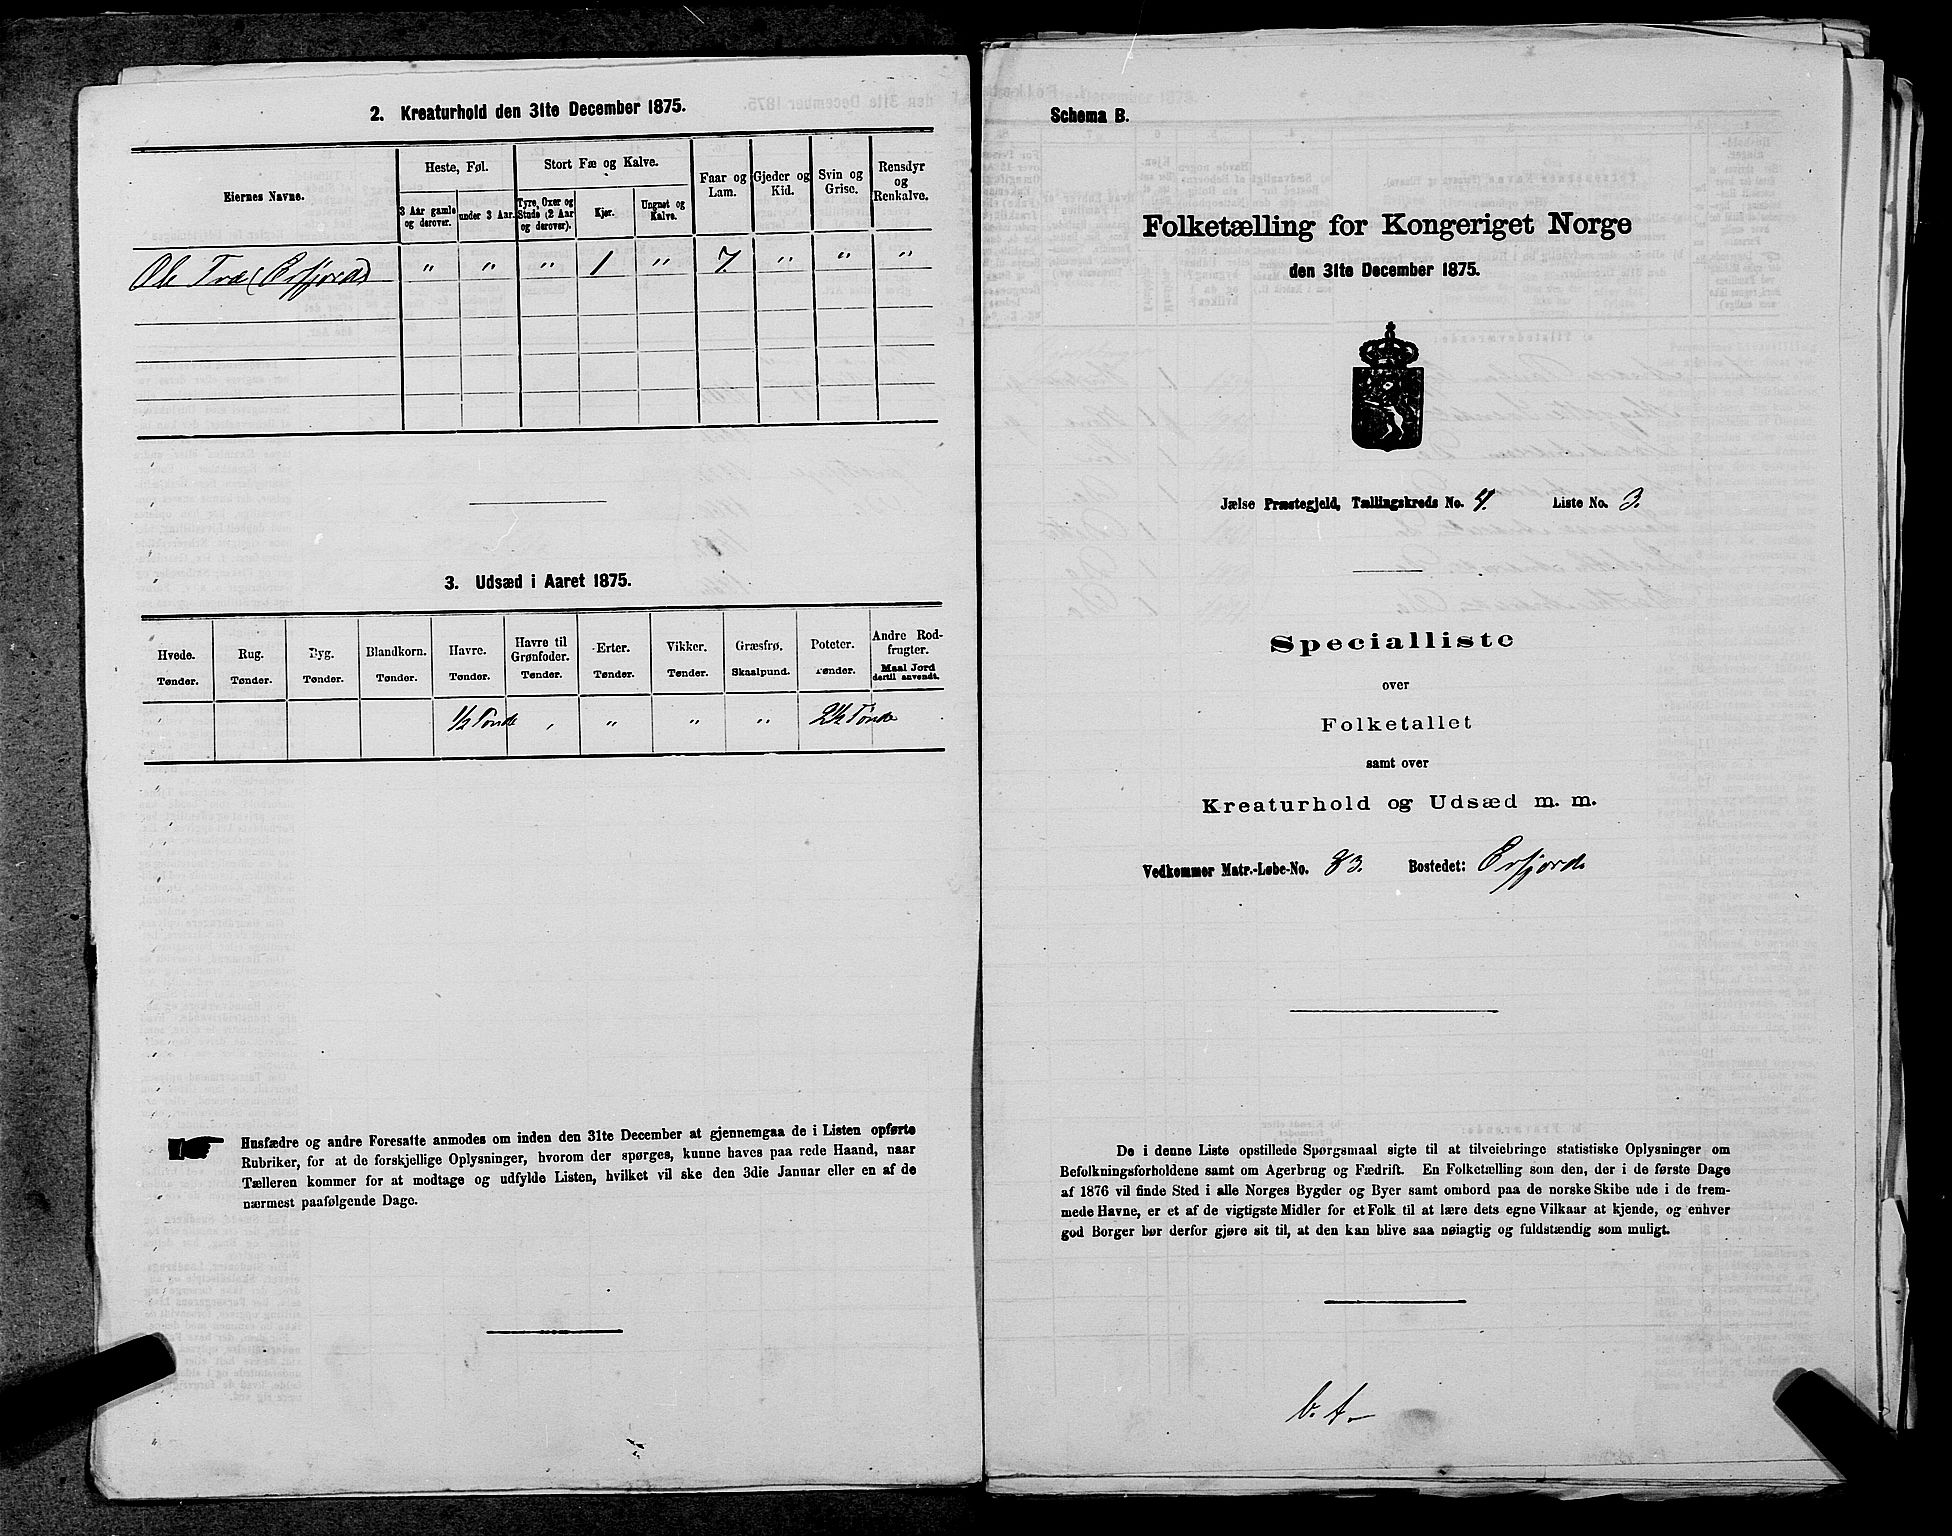 2. Kreaturhold den 31te December 1875.
Eiernes Navne.
Heste, Føl.
Stort Fæ og Kalve.
Faar og Lam.
Gjeder og Kid.
Svin og Grise.
Rensdyr og Renkalve.
3 Aar gamle og derover.
under 3 Aar.
Tyre, Oxer og Stude (2 Aar og derover).
Kjør.
Ungnøt og Kalve.
Ole Træ (Erfjord) " " " 1 " 7. " " "
3. Udsæd i Aaret 1875.
Hvede. Rug. Byg. Blandkorn. Havre. Havre til Grønfoder. Erter. Vikker. Græsfrø. Poteter. Andre Rodfrugter.
Tønder. Tønder. Tønder. Tønder. Tønder. Tønder. Tønder. Tønder. Skaalpund. Tønder. Maal Jord dertil anvendt.
1/2 Tønde " " " 2 1/2 Tønde
Husfædre og andre Foresatte anmodes om inden den 31te December at gjennemgaa de i Listen opførte
Rubriker, for at de forskjellige Oplysninger, hvorom der spørges, kunne haves paa rede Haand, naar
Tælleren kommer for at modtage og udfylde Listen, hvilket vil ske den 3die Januar eller en af de
nærmest paafølgende Dage.
Schema B.
Folketælling for Kongeriget Norge
den 31te December 1875.
Jælse Præstegjeld, Tællingskreds No. 4. Liste No. 3.
Specialliste
over
Folketallet
samt over
Kreaturhold og Udsæd m. m.
Vedkommer Matr.-Løbe-No. 83. Bostedet: Erfjord
De i denne Liste opstillede Spørgsmaal sigte til at tilveiebringe statistiske Oplysninger om
Befolkningsforholdene samt om Agerbrug og Fædrift. En Folketælling som den, der i de første Dage
af 1876 vil finde Sted i alle Norges Bygder og Byer samt ombord paa de norske Skibe ude i de frem-
mede Havne, er et af de vigtigste Midler for et Folk til at lære dets egne Vilkaar at kjende, og enhver
god Borger bør derfor gjøre sit til, at den kan blive saa nøiagtig og fuldstændig som muligt.